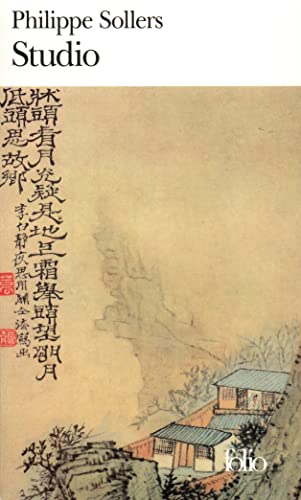 Philippe Sollers
Studio
牀頭看月光疑是地上霜舉頭望朙月
低頭思故鄉
李白靜夜思用
folio